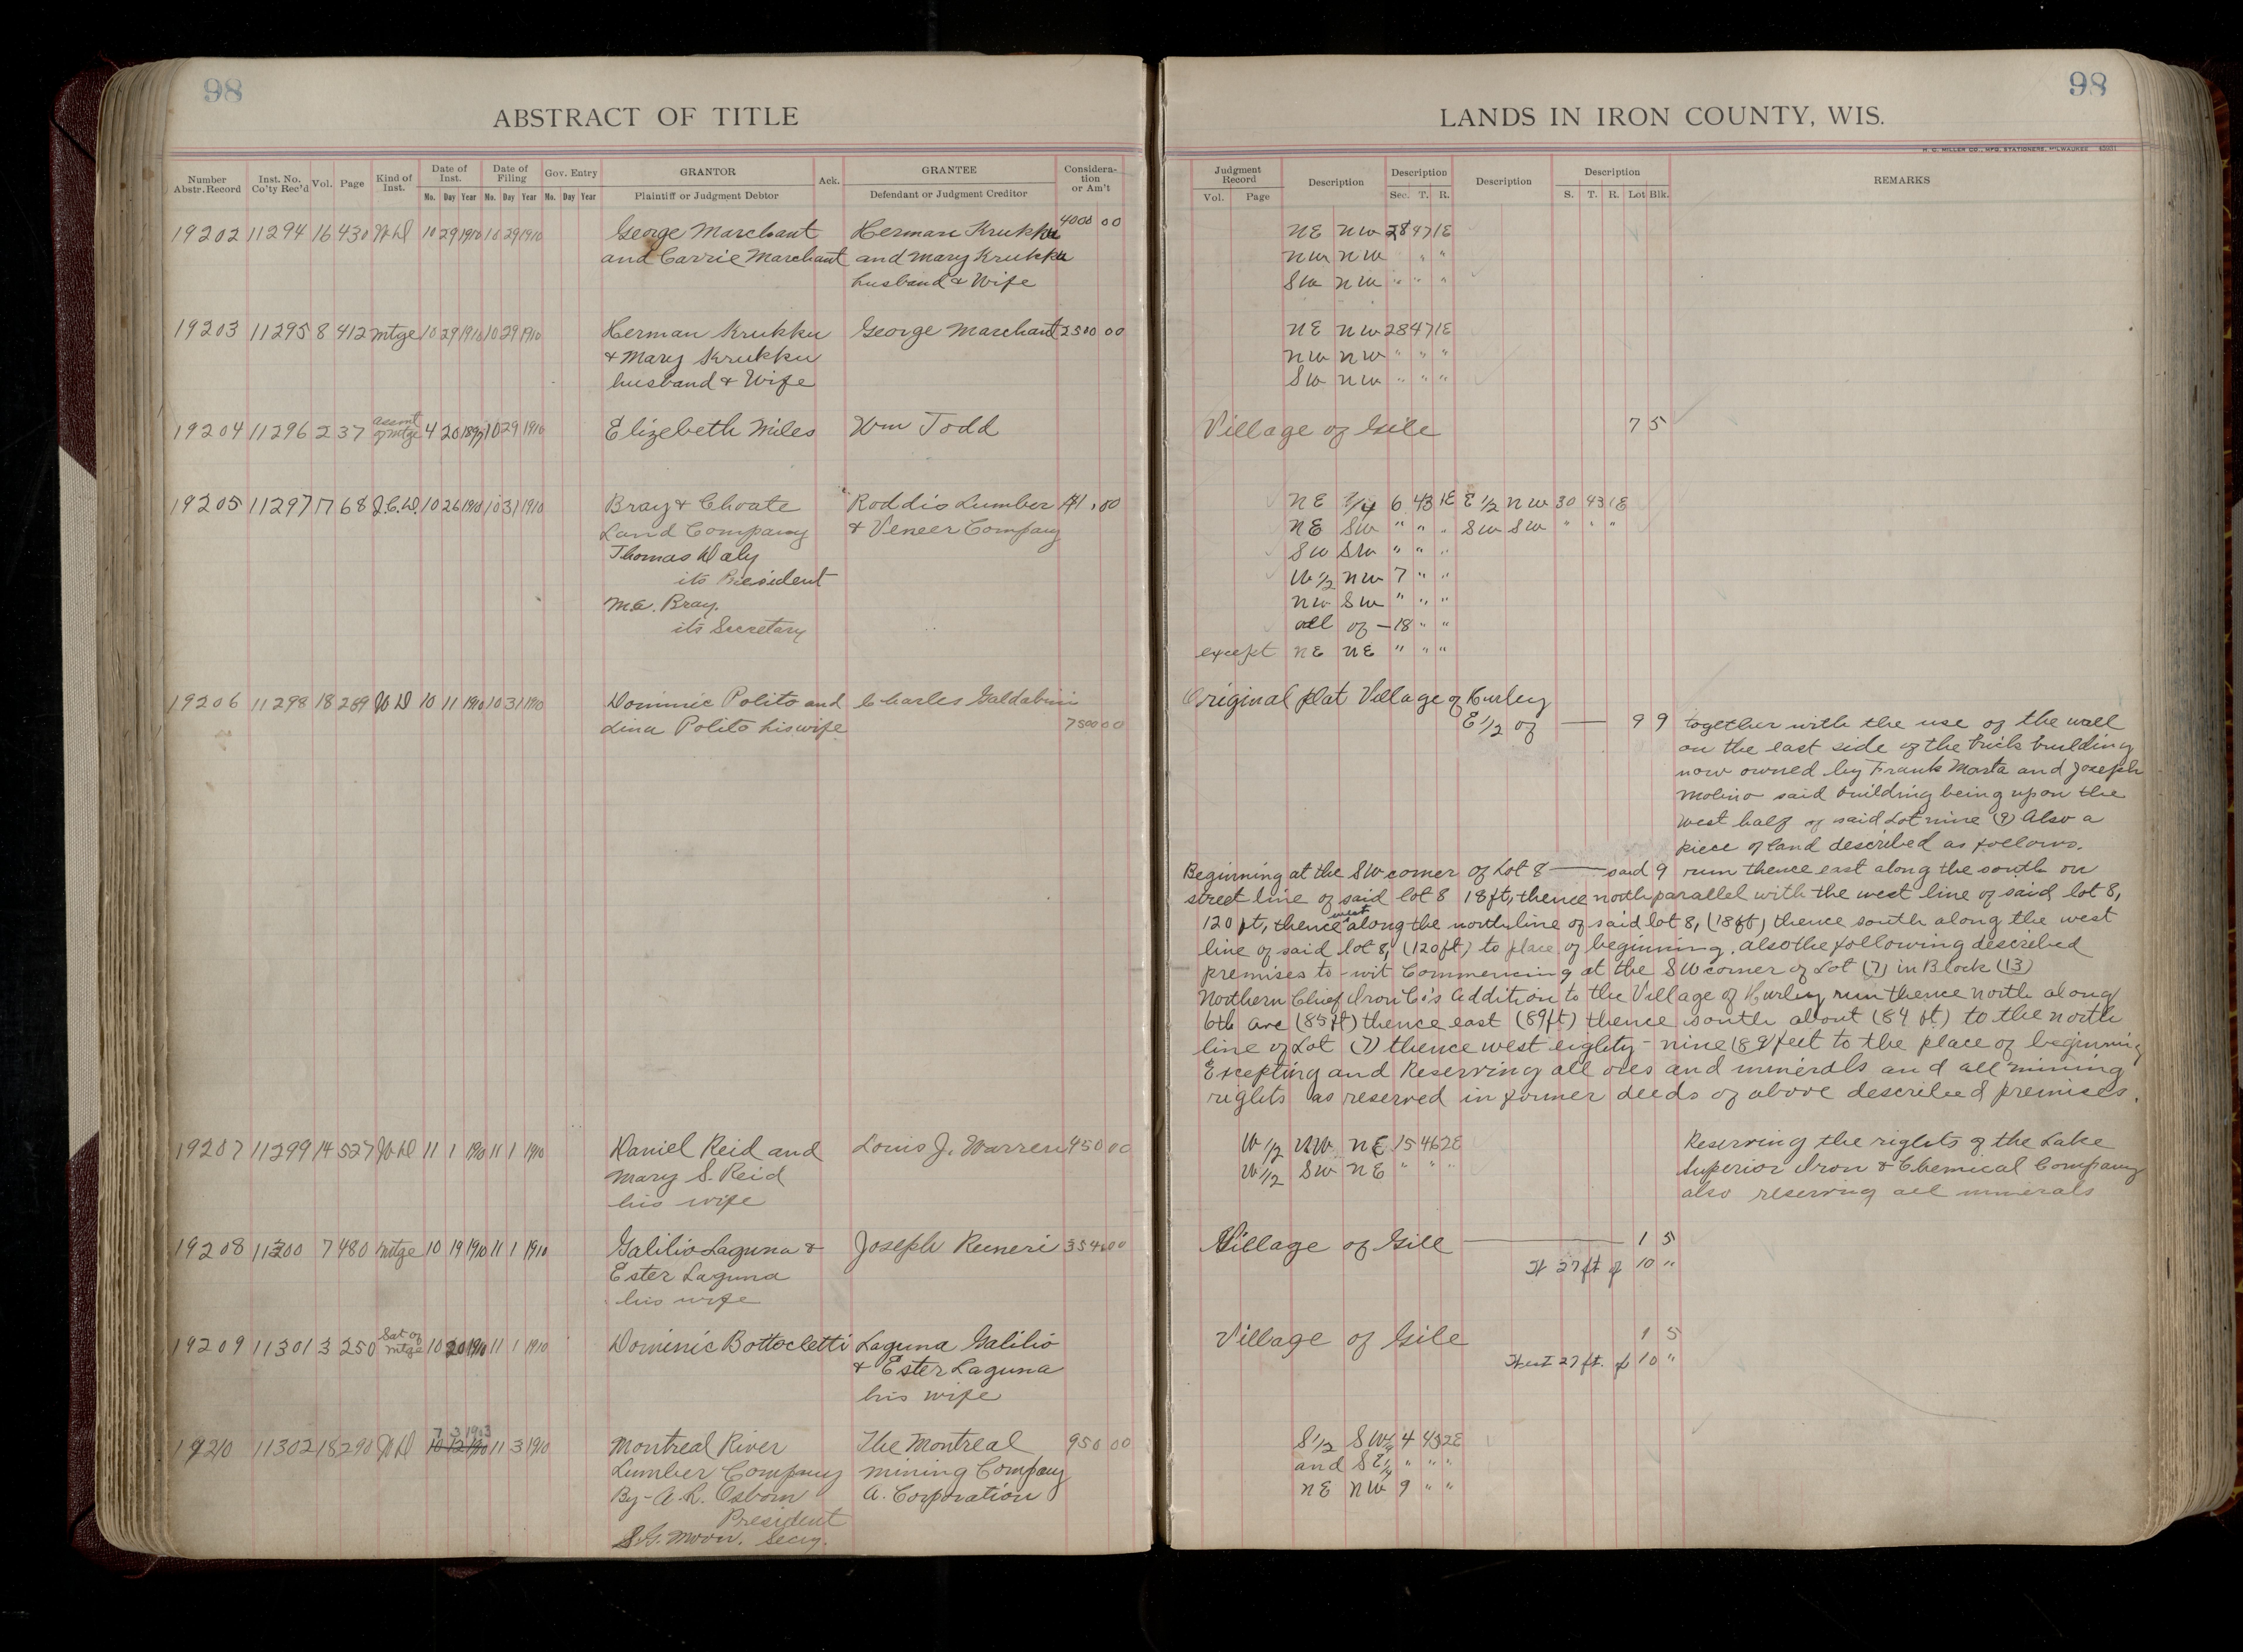 98
ABSTRACT OF TITLE
Number Abstr. Record | Inst. No. Co'ty Rec'd | Vol. | Page | Kind of Inst. | Date of Inst. No. Day Year | Date of Filing No. Day Year | Gov. Entry No. Day Year | GRANTOR Plaintiff or Judgment Debtor | Ack. | GRANTEE Defendant or Judgment Creditor | Consideration or Am't
19202 11294 16 430 W D 10 29 1910 10 29 1910 George Marchant Herman Krukku 4000 00
and Carrie Marchant and Mary Krukku
husband & Wife
19203 11295 8 412 mtge 10 29 1910 10 29 1910 Herman Krukku George Marchant 2500 00
& Mary Krukku
husband & Wife
19204 11296 2 37 assmt of mtge 4 20 10 29 1910 Elizebeth Miles Wm Todd
19205 11297 17 68 10 26 1910 10 31 1910 Bray & Choate Roddis Lumber
Land Company & Veneer Company
Thomas Daly
its President
M.E. Bray.
its Secretary
19206 11298 18 289 W D 10 11 1910 10 31 1910 Dominic Polito and Charles Galdabini
Lina Polito his wife 7500 00
19207 11299 14 527 W D 11 1 1910 11 1 1910 Daniel Reid and Louis J. Warren 450 00
Mary S. Reid
his wife
19208 11300 7 480 mtge 10 19 1910 11 1 1910 Galilio Laguna & Joseph Reineri 354 00
Ester Laguna
his wife
19209 11301 3 250 Sat of mtge 10 20 1910 11 1 1910 Dominic Bottocletti Laguna Galilio
& Ester Laguna
his wife
7 3 1903
19210 11302 18 290 W D 10 12 1910 11 3 1910 Montreal River The Montreal 950 00
Lumber Company Mining Company
By - A. R. Osborn A. Corporation
President
S.G. Moon. Secy.
98
LANDS IN IRON COUNTY, WIS.
H. C. MILLER CO., MFG. STATIONERS, MILWAUKEE
Judgment Record Vol. Page | Description | Description Sec. T. R. | Description | Description S. T. R. Lot Blk. | REMARKS
NE NW 28 47 1E
NW NW " "
SW NW " " "
NE NW 28 47 1E
NW NW " " "
SW NW " " "
Village of Gile 7 5
NE 1/4 6 43 1E E 1/2 NW 30 43 1E
NE SW " " " SW SW " " "
SW SW " " "
W 1/2 NW 7 " "
NW SW " " "
all of — 18 " "
except NE NE " " "
Original plat Village of Hurley
E 1/2 of —— 9 9 together with the use of the wall
on the east side of the brick building
now owned by Frank Marta and Joseph
Molino said building being upon the
West half of said Lot nine (9) Also a
piece of land described as follows.
Beginning at the SW corner of Lot 8 —— said 9 run thence east along the south on
street line of said lot 8 18 ft, thence north parallel with the west line of said lot 8,
120 ft, thence west along the north line of said lot 8, (18 ft) thence south along the west
line of said lot 8, (120 ft) to place of beginning. also the following described
premises to-wit Commencing at the SW corner of Lot (7) in Block (13)
Northern Chief Iron Co's Addition to the Village of Hurley run thence north along
6th Ave (85 ft) thence east (89 ft) thence south about (84 ft) to the north
line of Lot (7) thence west eighty-nine (89) feet to the place of beginning
Excepting and Reserving all ores and minerals and all mining
rights as reserved in former deeds of above described premises.
W 1/2 NW NE 15 46 2E Reserving the rights of the Lake
W 1/2 SW NE " " " Superior Iron & Chemical Company
also reserving all minerals
Village of Gile —— 1 5
W 27 ft of 10 "
Village of Gile 1 5
West 27 ft. of 10 "
S 1/2 SW 1/4 4 45 2E
and SE 1/4 " " "
NE NW 9 " "